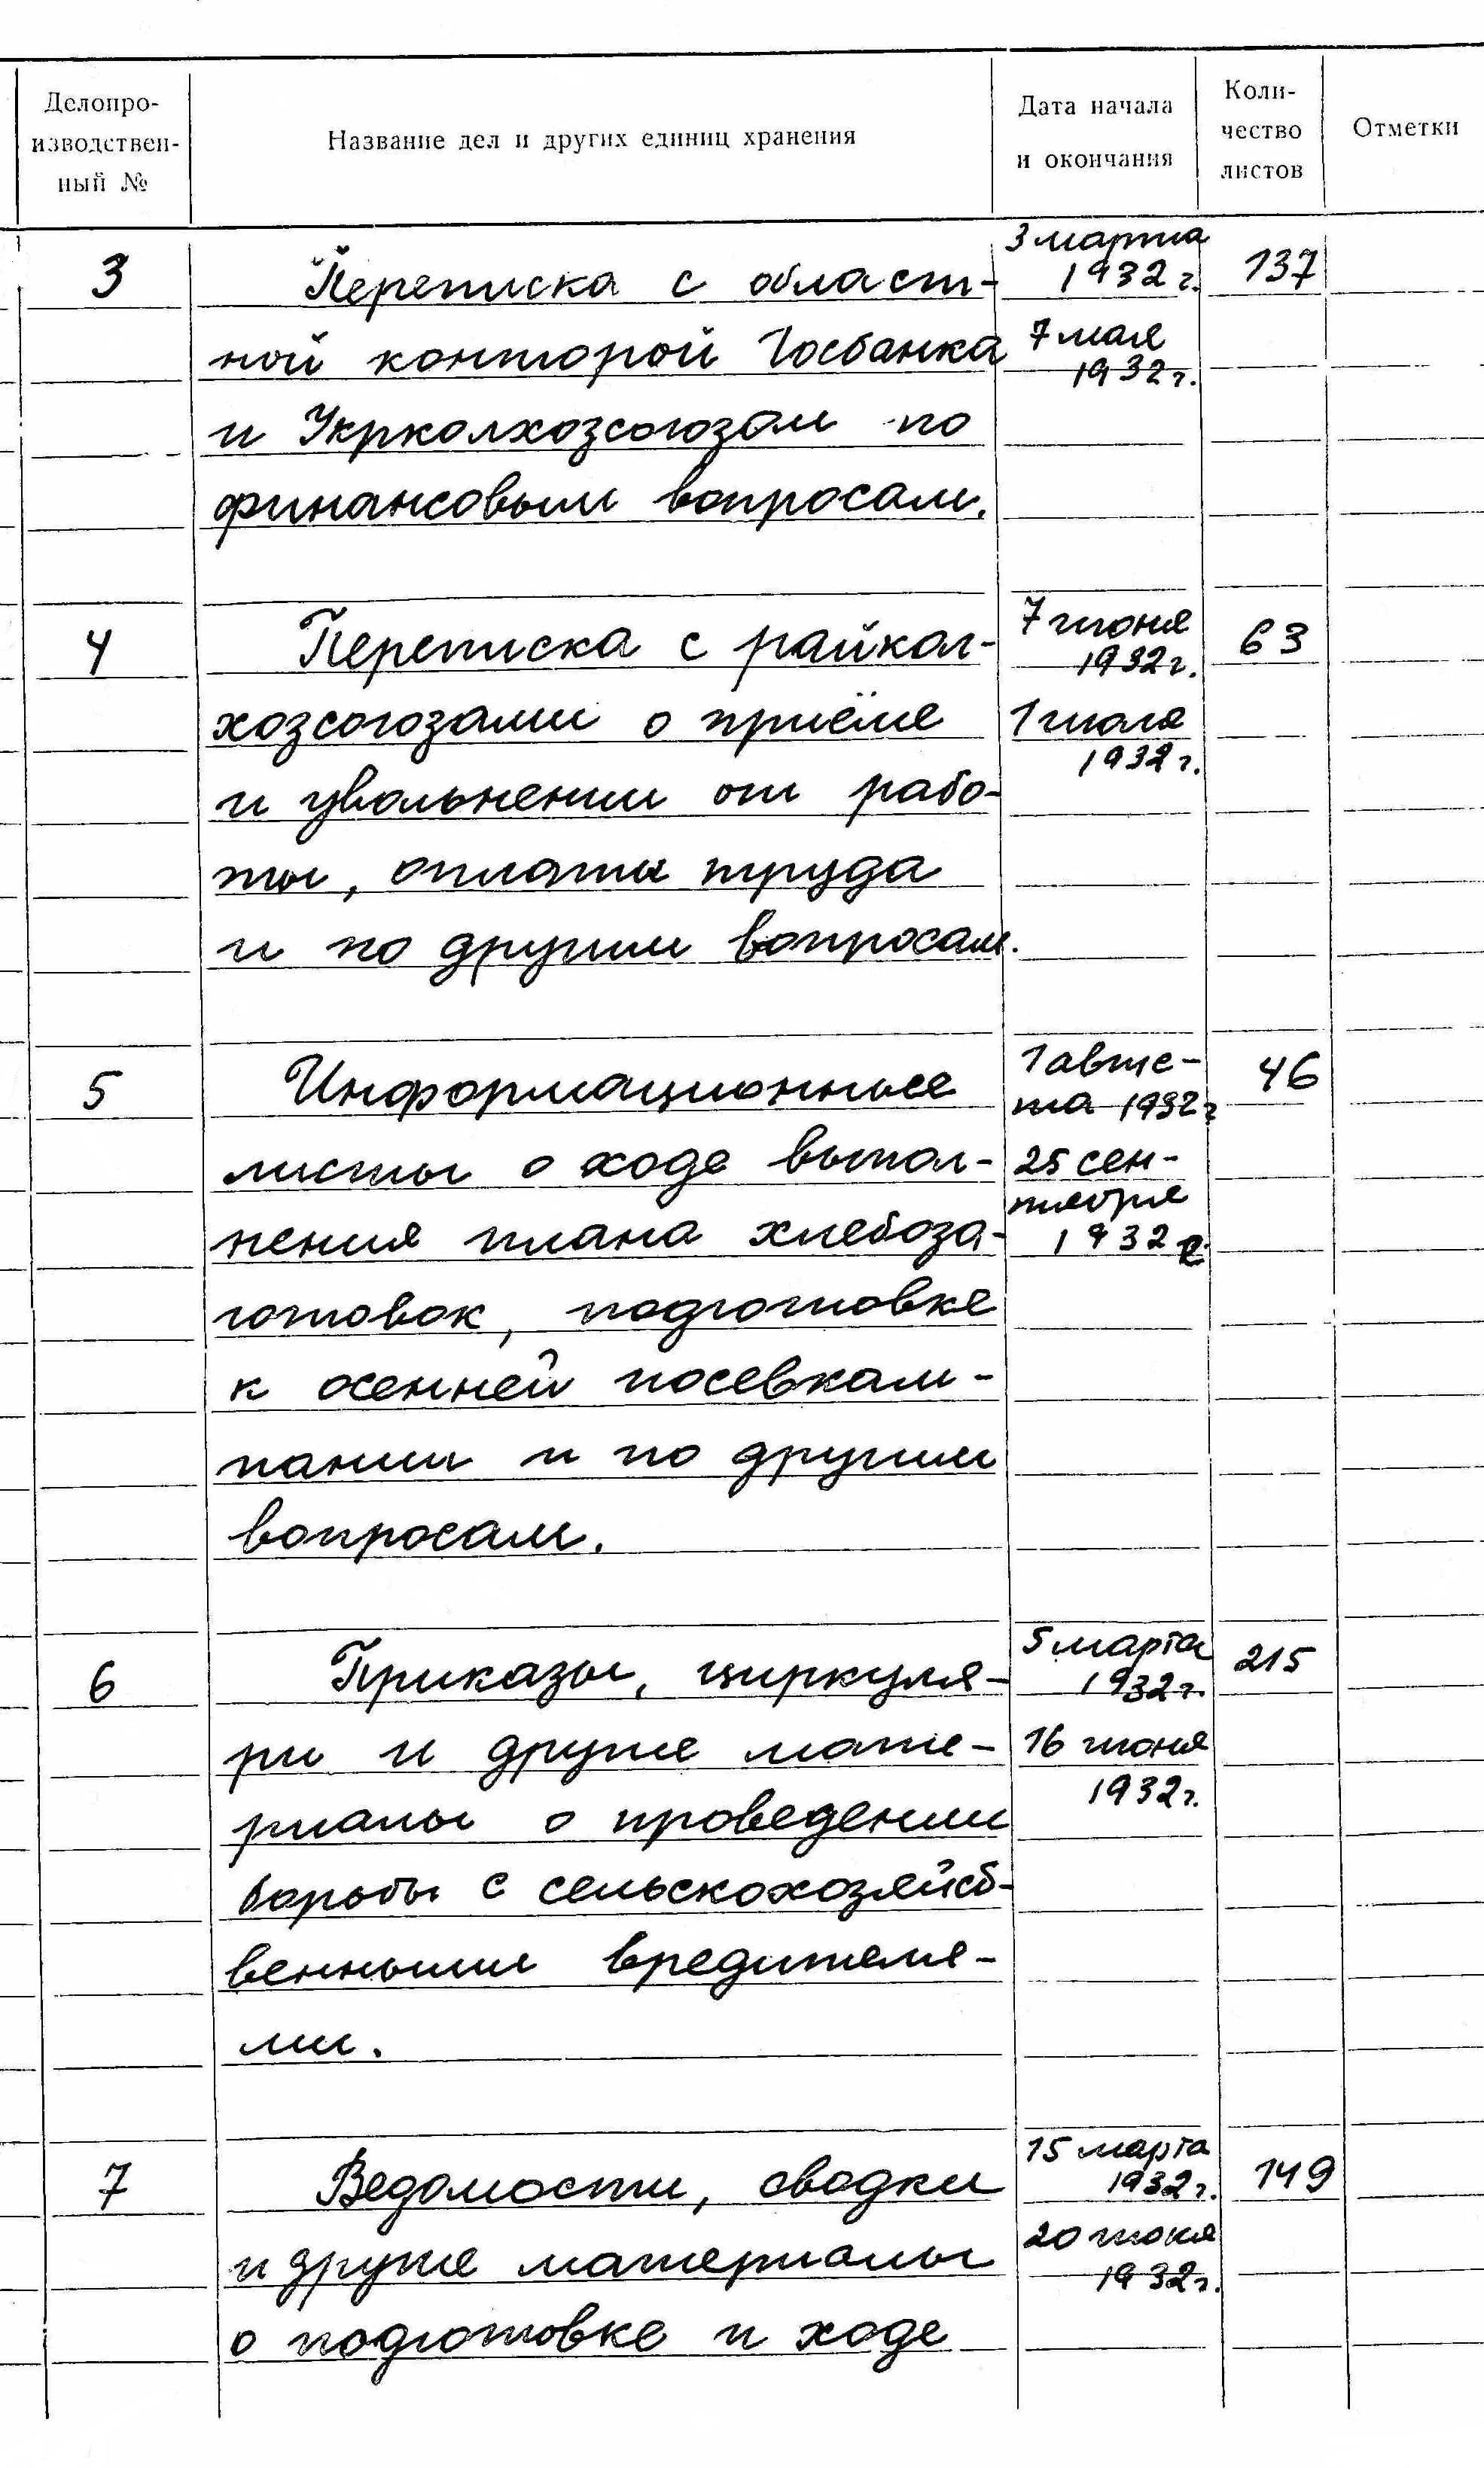 Делопро-
изводствен-
ный №
Название дел и других единиц хранения
Дата начала
и окончания
Коли-
чество
листов
Отметки
3
Переписка с област-
ной конторой Госбанка
и Укрколхозсоюзом по
финансовым вопросам.
3 марта
1932 г.
7 мая
1932 г.
137
4
Переписка с райкол-
хозсоюзами о приёме
и увольнении от рабо-
ты, оплаты труда
и по другим вопросам.
7 июня
1932 г.
1 июля
1932 г.
63
5
Информационные
листы о ходе выпол-
нения плана хлебоза-
готовок, подготовке
к осенней посевкам-
пании и по другим
вопросам.
1 авгус-
та 1932 г
25 сен-
тября
1932 г.
46
6
Приказы, циркуля-
ри и другие мате-
риалы о проведении
борьбы с сельскохозяйст-
венными вредителя-
ми.
5 марта
1932 г.
16 июня
1932 г.
215
7
Ведомости, сводки
и другие материалы
о подготовке и ходе
15 марта
1932 г.
20 июня
1932 г.
149